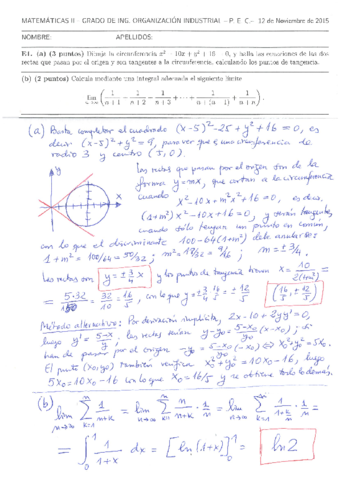 MATEMÁTICAS II - GRADO DE ING. ORGANIZACIÓN INDUSTRIAL - P. E. C.- 12 de Noviembre de 2015
NOMBRE: APELLIDOS:
E1. (a) (3 puntos) Dibuja la circunferencia x² − 10x + y² + 16 = 0, y halla las ecuaciones de las dos
rectas que pasan por el origen y son tangentes a la circunferencia, calculando los puntos de tangencia.
(b) (2 puntos) Calcula mediante una integral adecuada el siguiente límite
lim n→∞ (1/(n+1) + 1/(n+2) + 1/(n+3) + ··· + 1/(n+(n−1)) + 1/(n+n)).
(a) Basta completar el cuadrado (x-5)²-25+y²+16=0, es
decir (x-5)²+y²=9, para ver que es una circunferencia de
radio 3 y centro (5,0).
Las rectas que pasan por el origen son de la
forma y=mx, que cortan a la circunferencia
cuando x²-10x+m²x²+16=0, es decir,
(1+m²)x²-10x+16=0, y serán tangentes
cuando sólo tengan un punto en común,
con lo que el discriminante 100-64(1+m²) debe anularse:
1+m²=100/64=50/32, m²=18/32=9/16; m=±3/4.
Las rectas son y=±3/4 x y los puntos de tangencia tienen x=10/2(1+m²)
=5·32/50=32/10=16/5, con lo que y=±3/4·16/5=±12/5 (16/5, ±12/5)
Método alternativo: Por derivación implícita, 2x-10+2yy'=0,
luego y'=5-x/y, las rectas serían y-y₀=5-x₀/y₀(x-x₀), si
han de pasar por el origen -y₀=5-x₀/y₀(-x₀) ⇔ x₀²+y₀²=5x₀.
El punto (x₀,y₀) también verifica x₀²+y₀²=10x₀-16, luego
5x₀=10x₀-16 con lo que x₀=16/5 y se obtiene todo lo demás.
(b) lim n→∞ Σ k=1 n 1/n+k = lim n→∞ Σ k=1 n n/n+k · 1/n = lim n→∞ Σ k=1 n 1/1+k/n · 1/n =
= ∫₀¹ 1/1+x dx = [ln(1+x)]₀¹ = ln 2